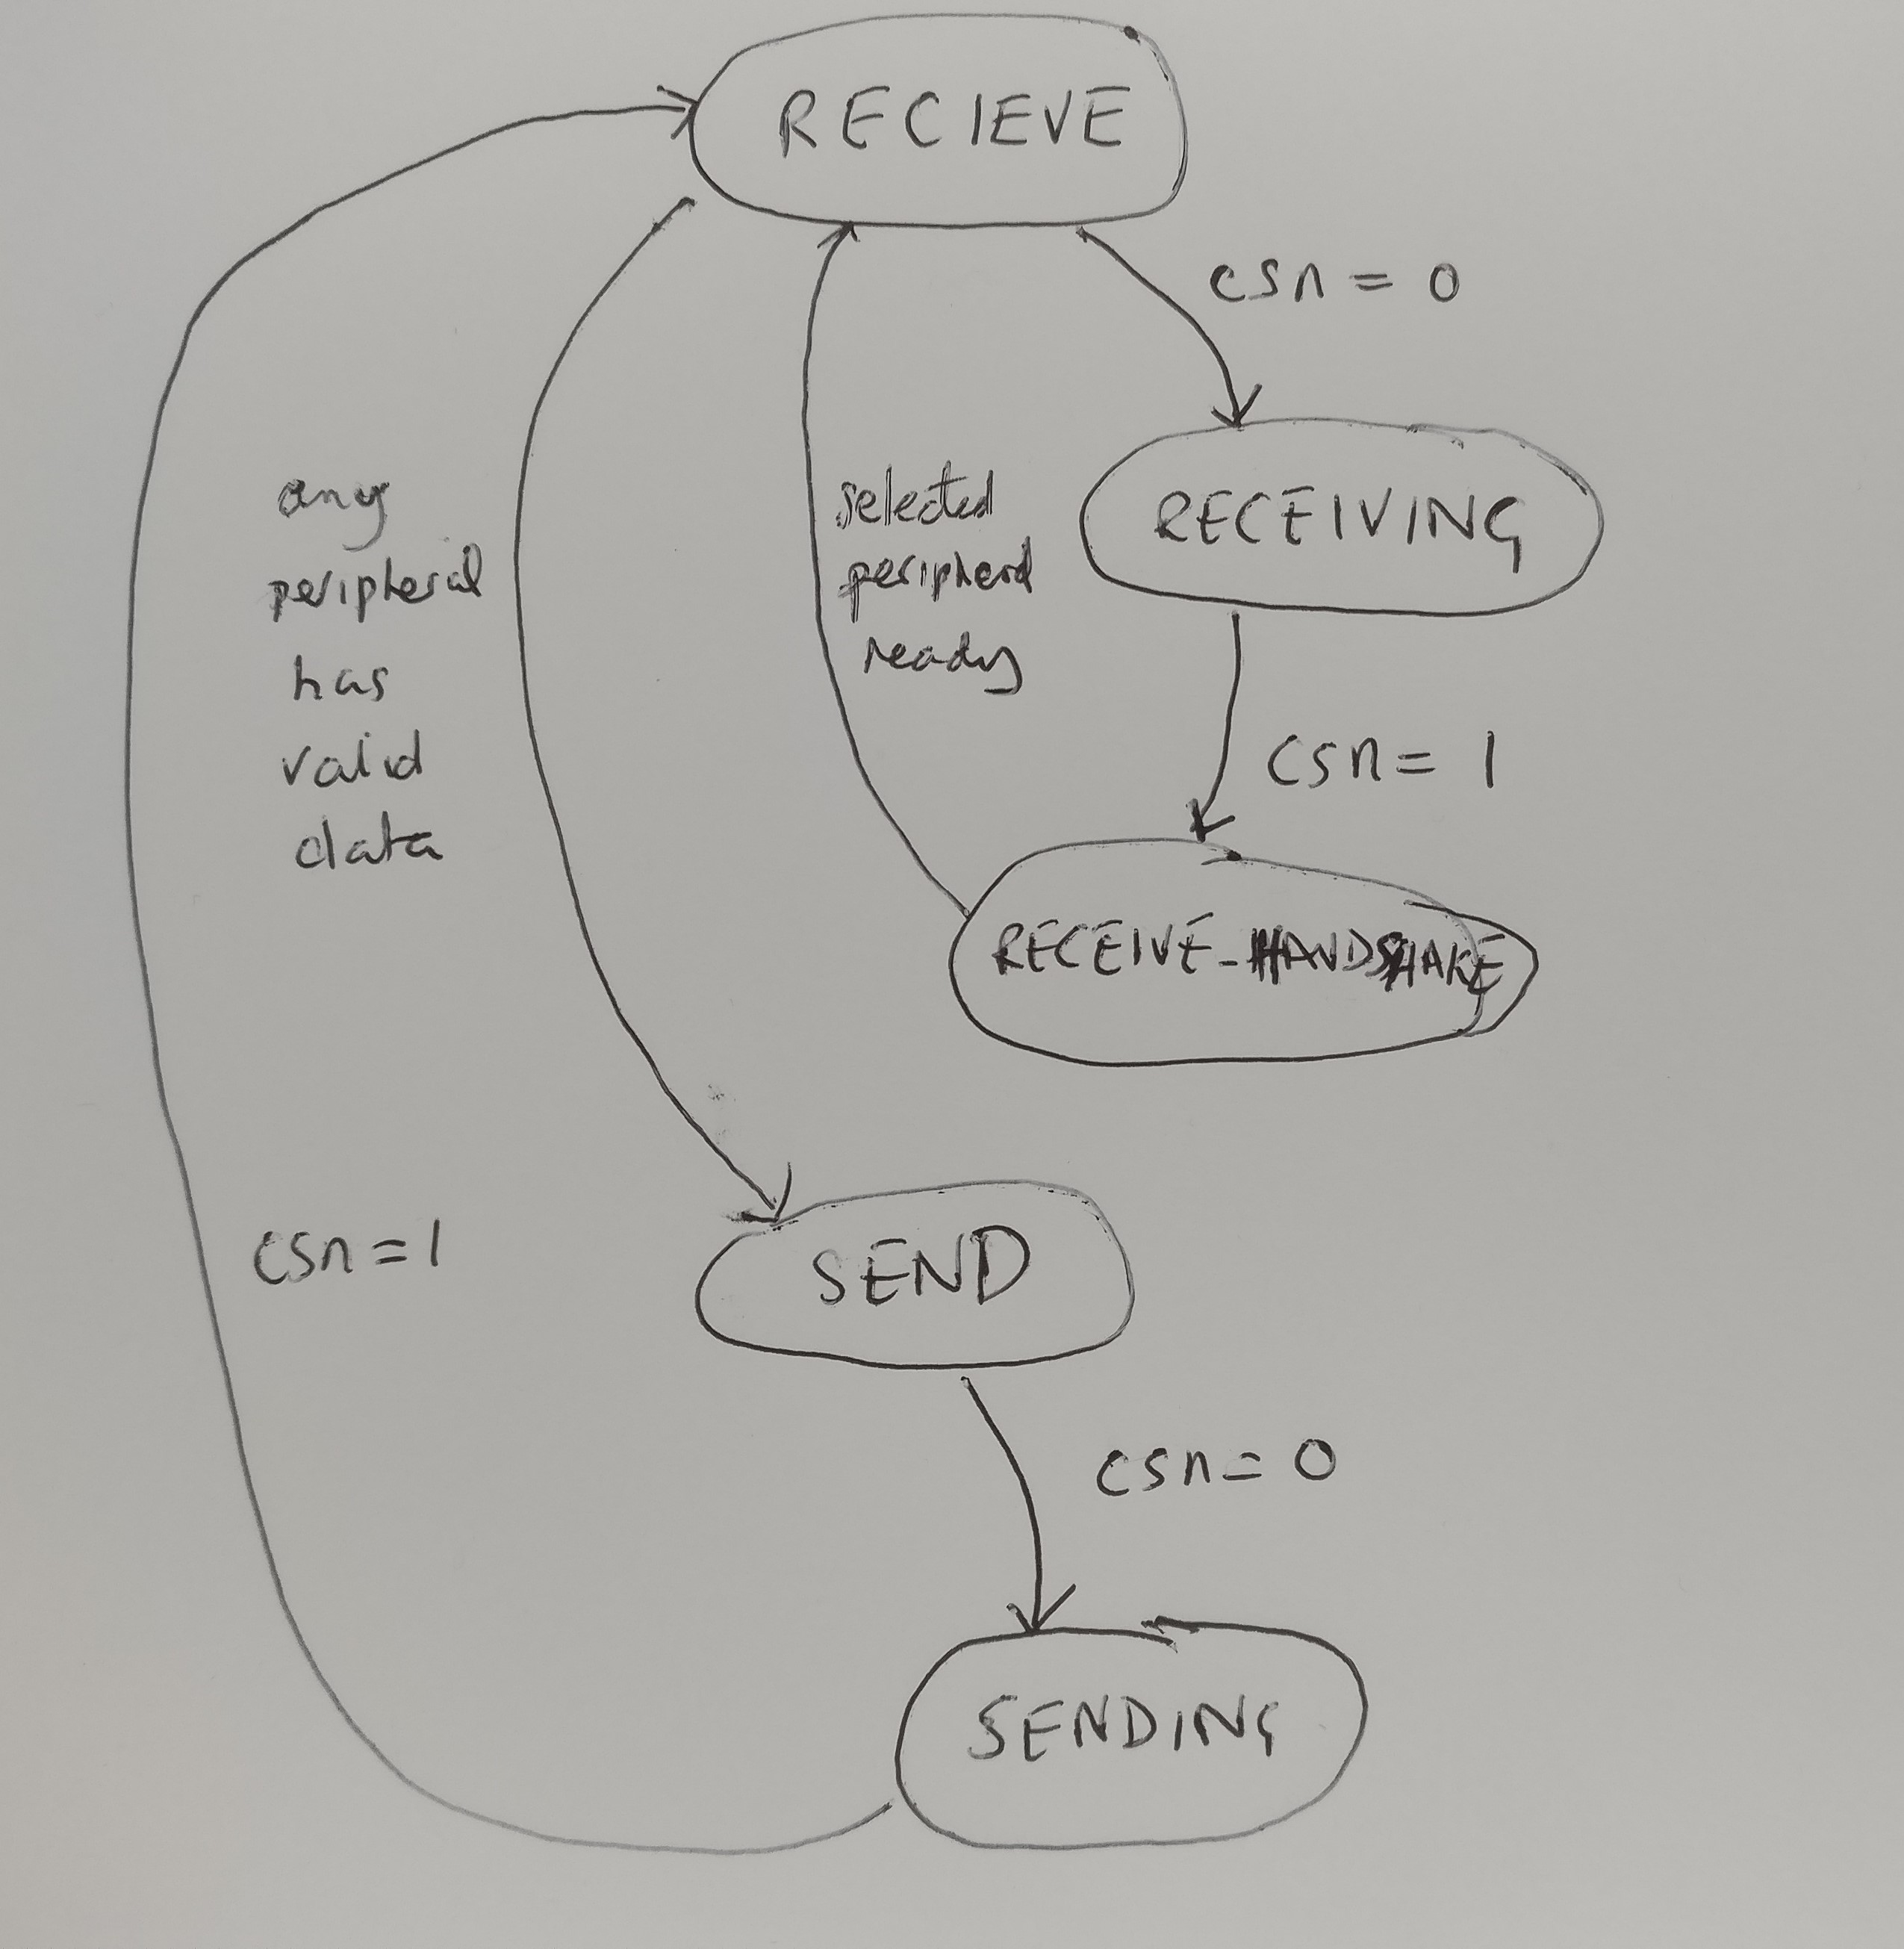 RECIEVE
csn = 0
any
peripheral
has
valid
data
selected
peripheral
ready
RECEIVING
csn = 1
RECEIVE_HANDSHAKE
csn = 1
SEND
csn = 0
SENDING